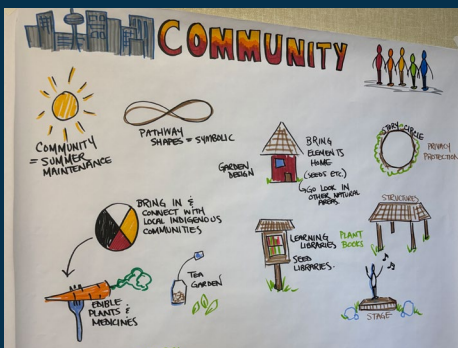 COMMUNITY
COMMUNITY
= SUMMER
MAINTENANCE
PATHWAY
SHAPES = SYMBOLIC
GARDEN
DESIGN
BRING
ELEMENTS
HOME
(SEEDS ETC)
↳ GO LOOK IN
OTHER NATURAL
AREAS.
STORY CIRCLE
PRIVACY
PROTECTION
BRING IN &
CONNECT WITH
LOCAL INDIGENOUS
COMMUNITIES
EDIBLE
PLANTS &
MEDICINES
TEA
GARDEN
LEARNING
LIBRARIES
SEED
LIBRARIES.
PLANT
BOOKS
STRUCTURES
STAGE